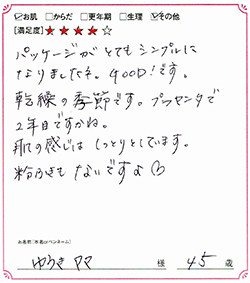 ☑お肌 □からだ □更年期 □生理 ☑その他
[満足度]★★★★☆
パッケージがとてもシンプルに
なりましたネ。GOOD!です。
乾燥の季節です。プラセンタで
2年目ですかね。
肌の感じはしっとりとしています。
粉ふきもないですよ♡
お名前(本名orペンネーム)
ゆうきママ 様 45 歳